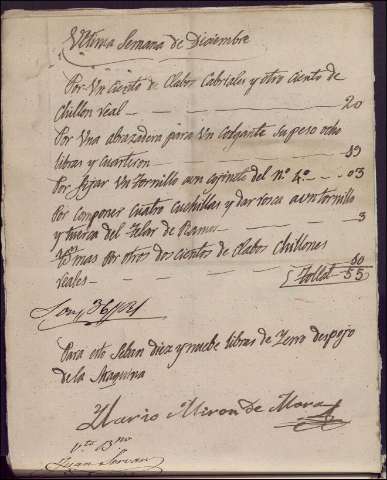 Ultima Semana de Diciembre
Por Un Ciento de Clabos Cabriales y otro ciento de
Chillon real 20
Por Una abrazadera para Un Colgante su peso ocho
libras y Cuarteron 19
Por fijar Un tornillo a un cojinete del nº 4º 03
Por componer Cuatro Cuchillas y dar rosca a un tornillo
y tuerca del Telar de Ramos 3
mas Por otros dos cientos de Clabos Chillones
reales 10
Total 55
Para esto Seban diez y nuebe libras de Yerro despojo
de la Maquina
Mario Miron de Mora
Vto Bno
Juan